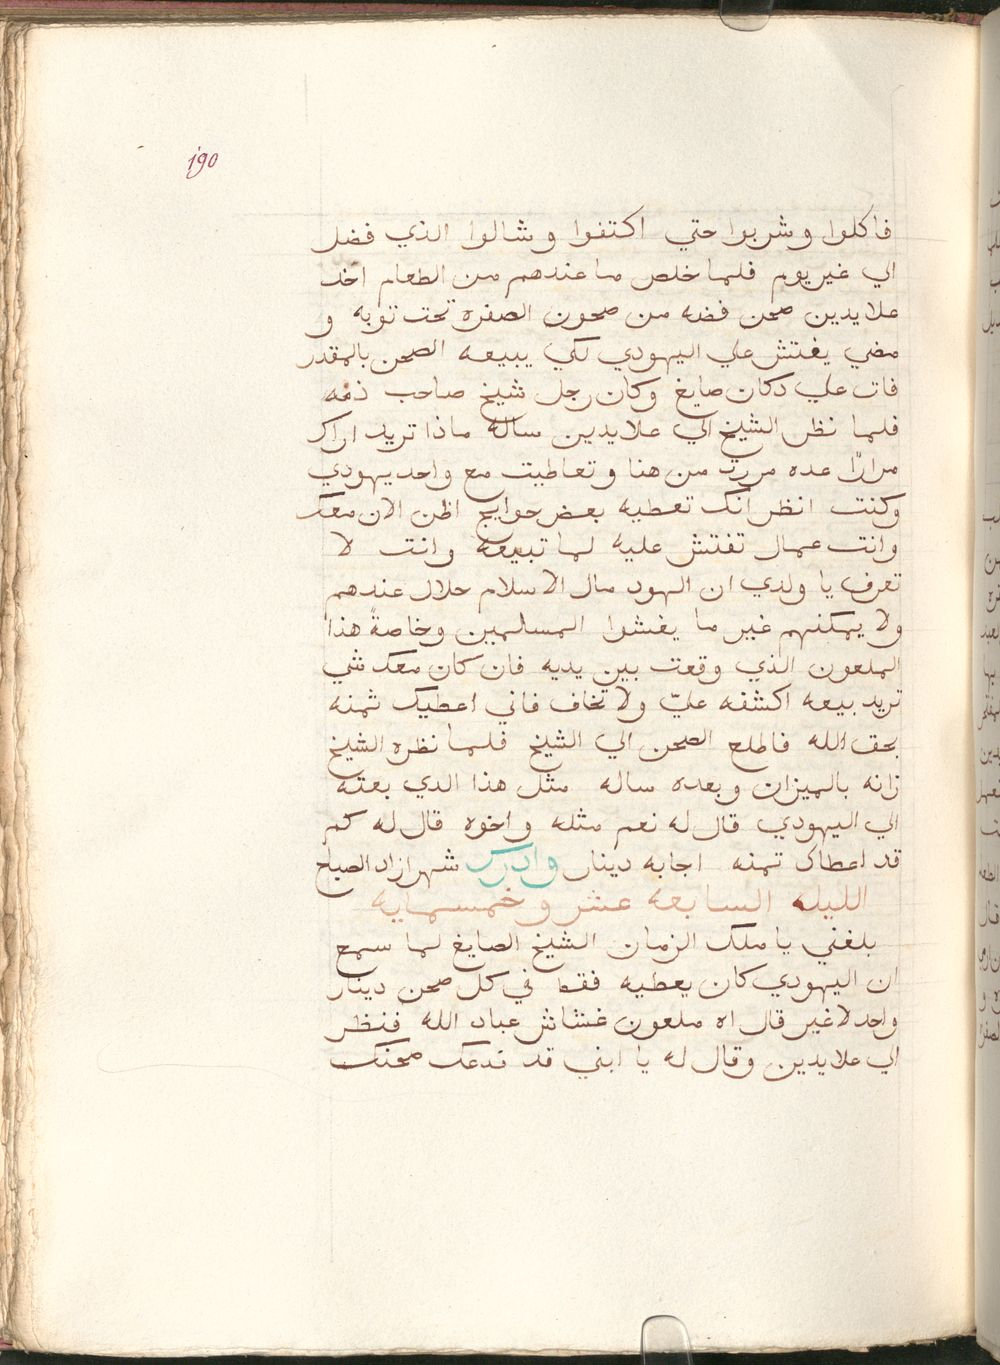 190
فاكلوا وشربوا حتي اكتفوا وشالوا الذي فضل
الي غير يوم فلما خلص ما عندهم من الطعام اخد
علايدين صحن فضه من صحون الصفره تحت توبه و
مضي يفتش علي اليهودي لكي يبيعه الصحن بالمقدر
فات علي دكان صايغ وكان رجل شيخ صاحب ذمه
فلما نظر الشيخ الي علايدين ساله ماذا تريد اراك
مرارًا عده مررت من هنا وتعاطيت مع واحد يهودي
وكنت انظر انك تعطيه بعض حوايج اظن الان معك
وانت عمال تفتش عليه لما تبيعه وانت لا
تعرف يا ولدي ان الهود مال الاسلام حلال عندهم
ولا يمكنهم غير ما يغشوا المسلمين وخاصةً هذا
الملعون الذي وقعت بين يديه فان كان معك شي
تريد بيعه اكشفه عليّ ولا تخاف فاني اعطيك ثمنه
بحق الله فاطلع الصحن الي الشيخ فلما نظره الشيخ
زانه بالميزان وبعده ساله مثل هذا الدي بعته
الي اليهودي قال له نعم مثله واخوه قال له كم
قد اعطاك تمنه اجابه دينار وادرك شهرازاد الصباح
الليله السابعه عشر وخمسمايه
بلغني يا ملك الزمان الشيخ الصايغ لما سمع
ان اليهودي كان يعطيه فقط في كل صحن دينار
واحد لا غير قال اه ملعون غشاش عباد الله فنظر
الي علايدين وقال له يا ابني قد قدعك صحنك